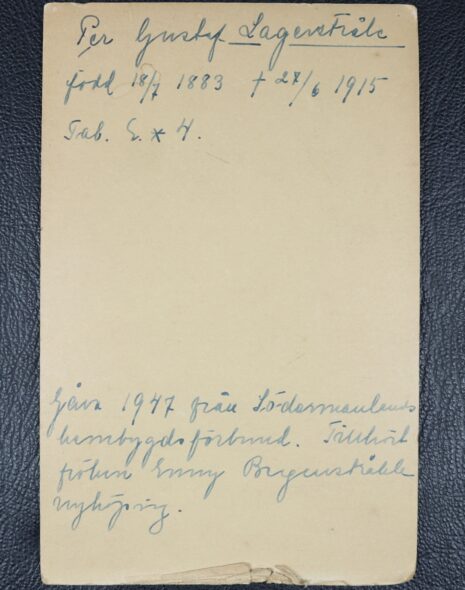 Per Gustaf Lagerstråle
född 18/7 1883 † 27/6 1915
Tab. E. * 4.
Gåva 1947 från Södermanlands
hembygdsförbund. Tillhört
fröken Enny Bergenstråhle
Nyköping.